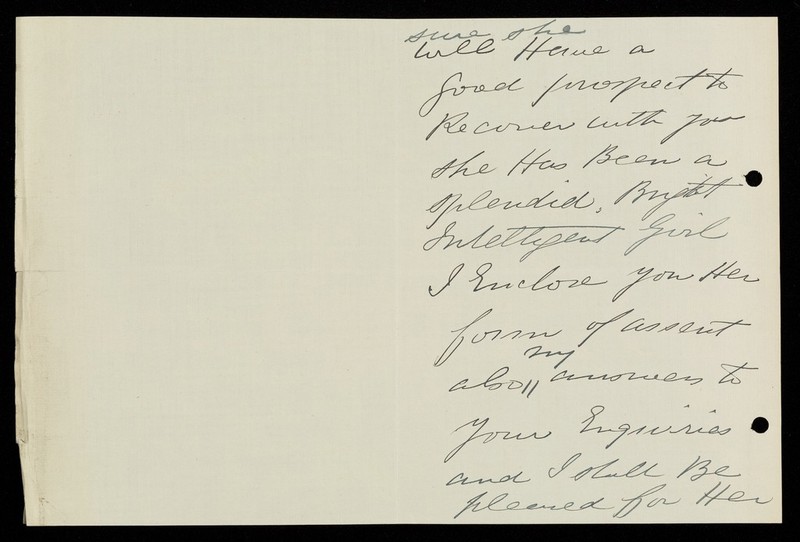 sure she
will Have a
good prospect to
Recover with you
she Has Been a
splendid, Bright
Intelligent Girl
I Enclose you Her
form of assent
my
also,, answers to
your Enquiries
and I shall Be
pleased for Her